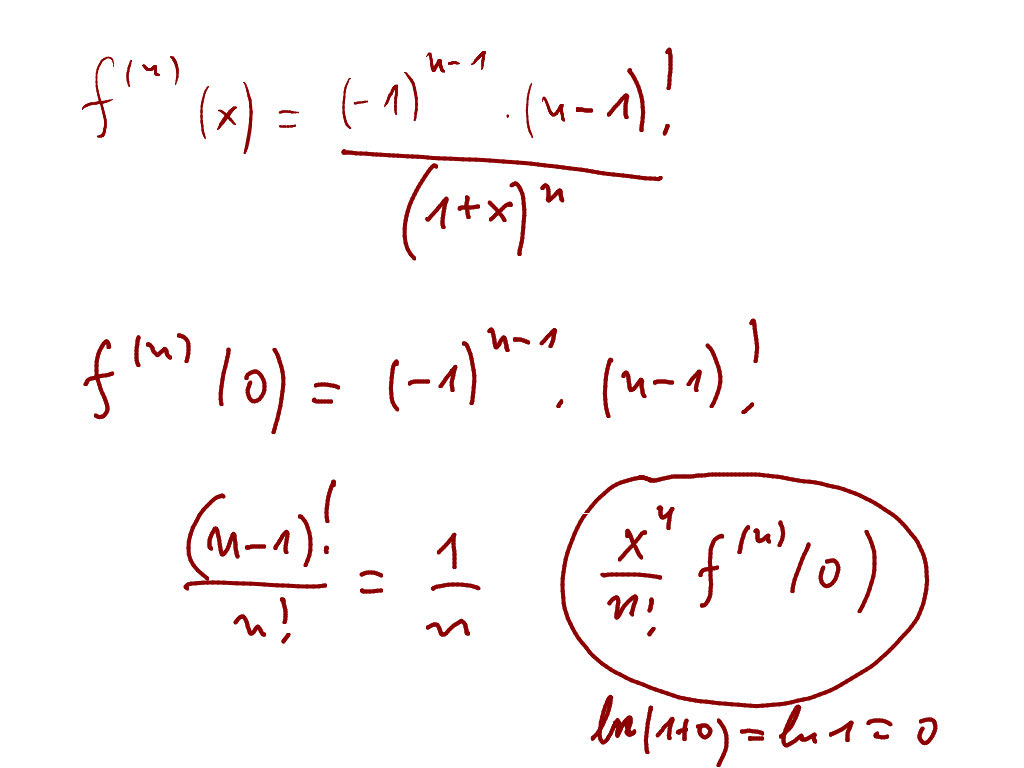 f^(n) (x) = ((-1)^(n-1) · (n-1)!) / (1+x)^n
f^(n) (0) = (-1)^(n-1) · (n-1)!
(n-1)! / n! = 1/n
x^n / n! f^(n) (0)
ln(1+0) = ln 1 = 0